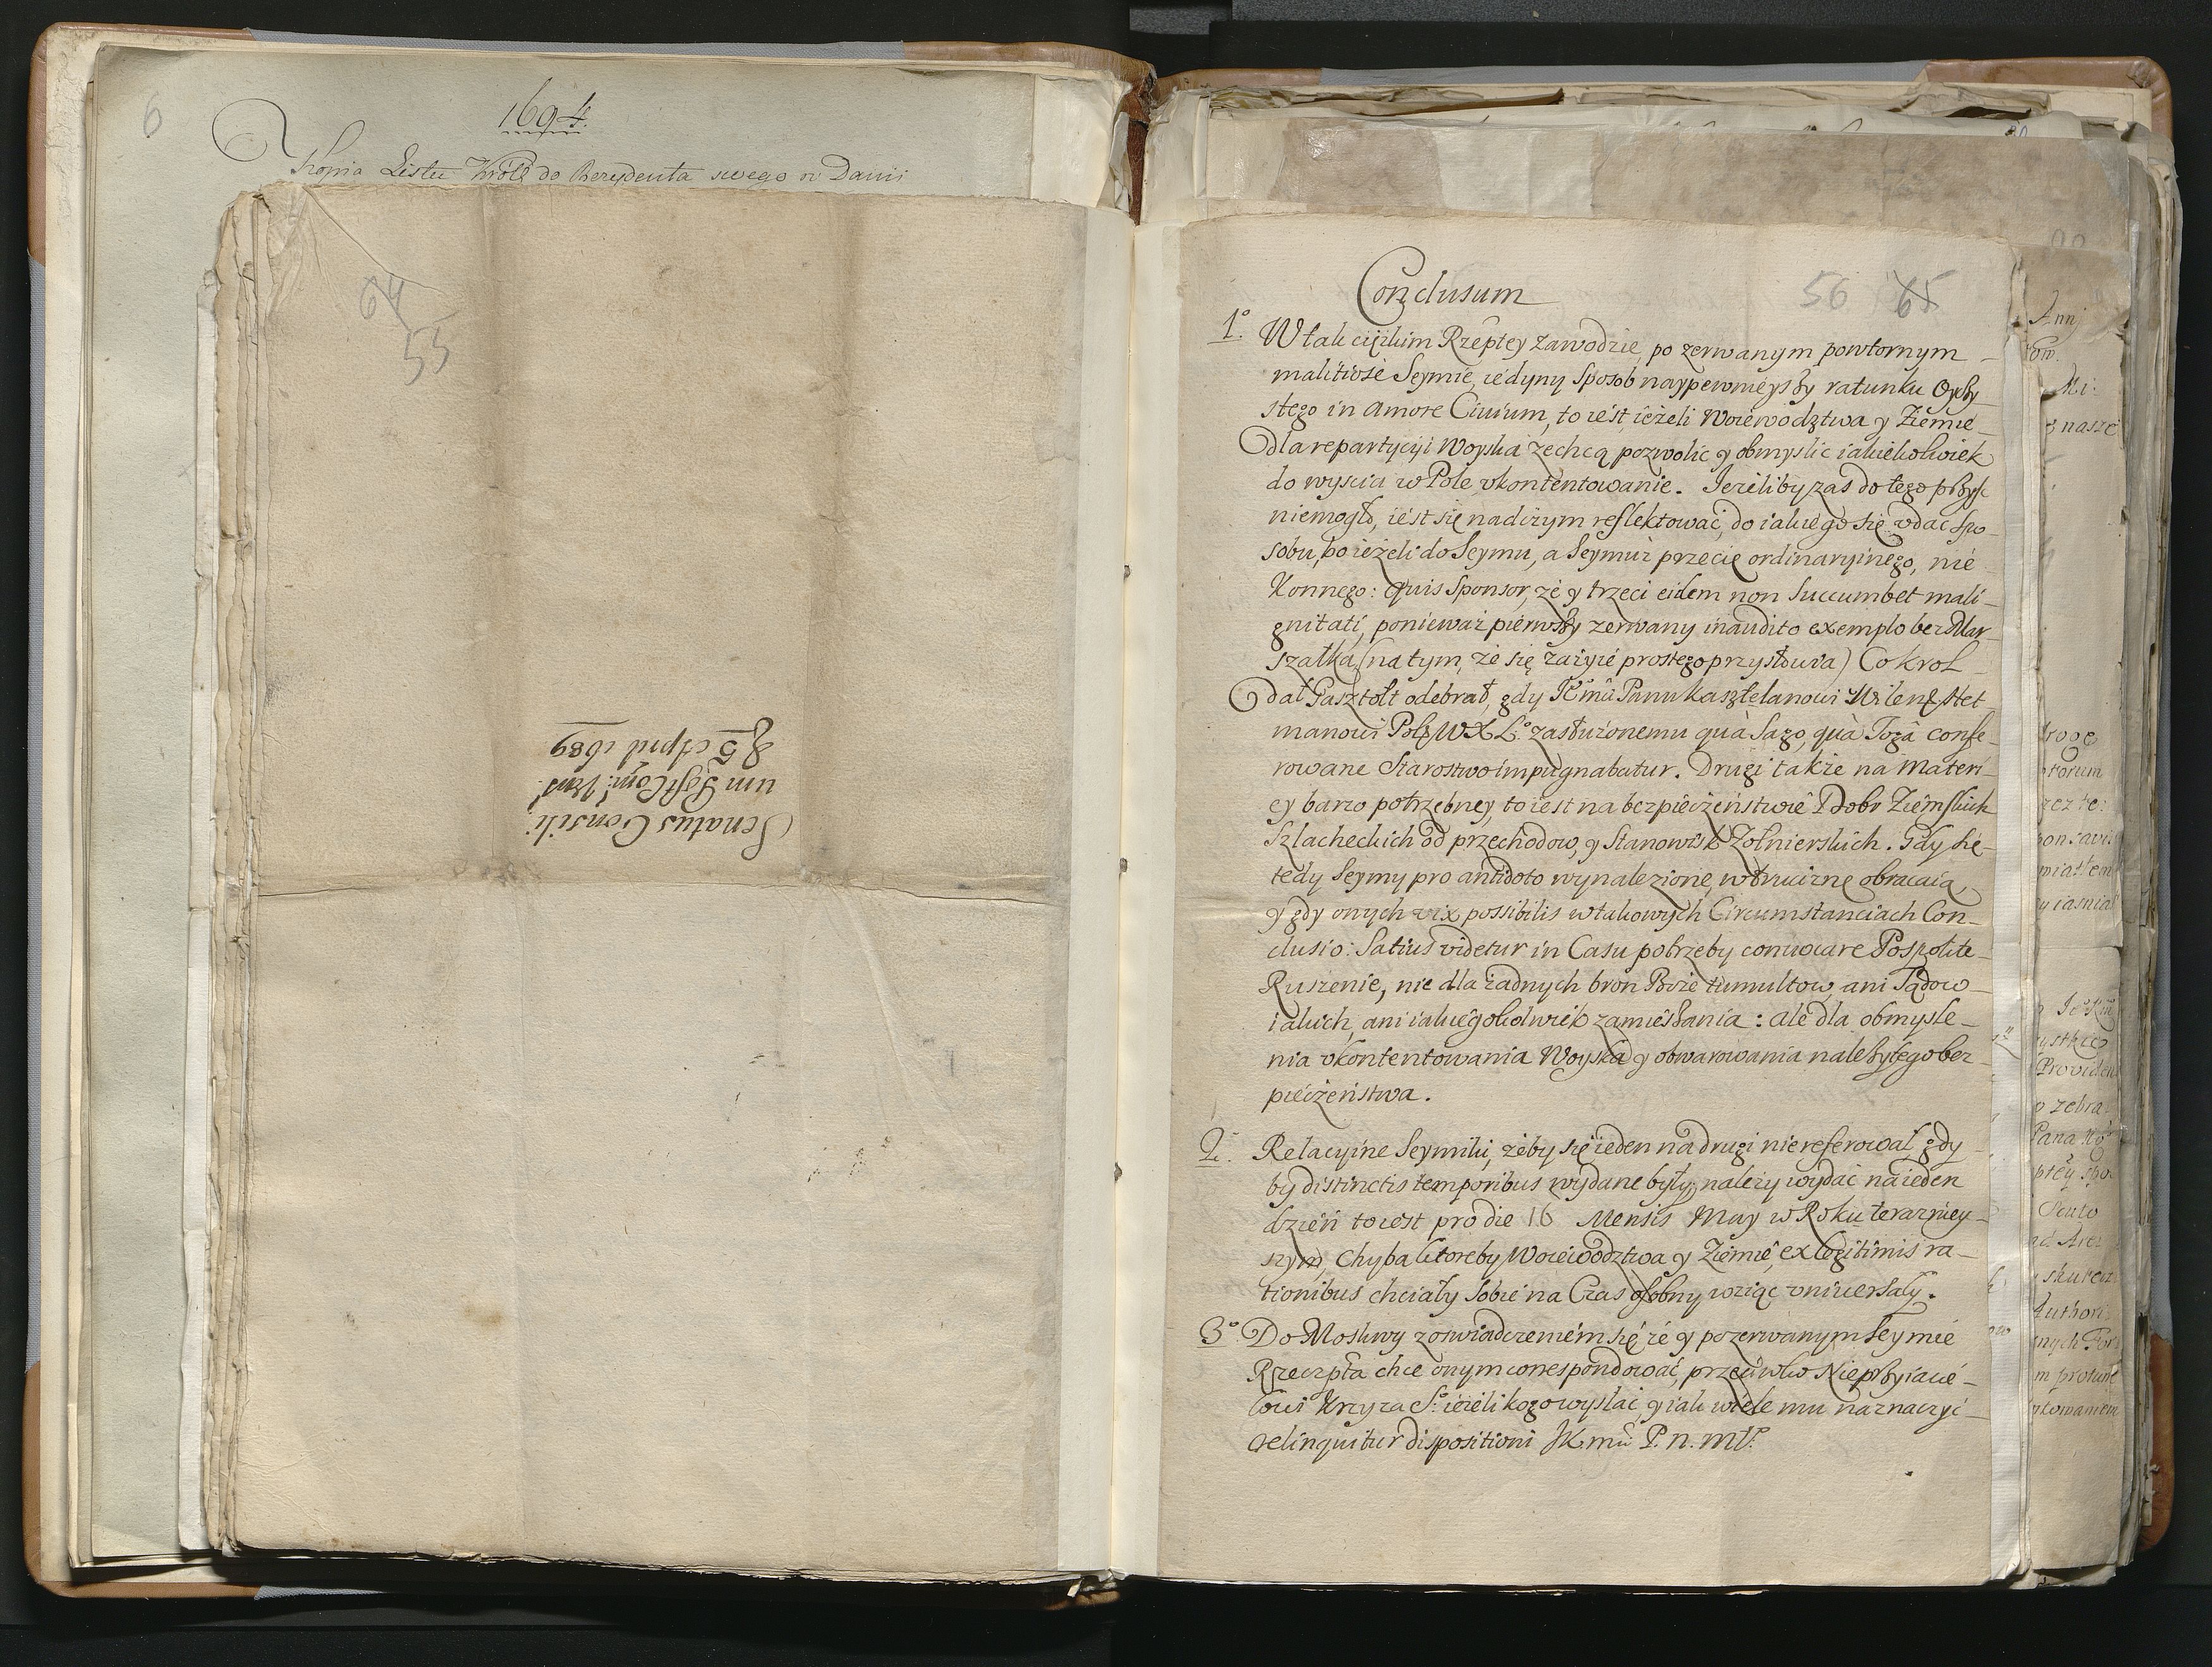 6
1694.
Kopia Listu Króla do Rezydenta swego w Danii
64
55
Senatus Consili
um Post Comi: Vars:
D 5 April 1689
56 65
Conclusum
1º. W tak ciężkim Rzeptey zawodzie, po zerwanym powtornym
malitiose Seymie, iedyny sposob naypewnieyszy ratunku Oyczy
stego in amore Ciuium, to iest, ieżeli Woiewodztwa y Ziemie
dla repartycyi Woyska zechcą pozwolic y obmyslic iakiekolwiek
do wyscia w Pole vkontentowanie. Jeżeliby zas do tego przysc
niemogło, iest się nad czym reflektować, do iakiego się vdac spo
sobu, bo ieżeli do Seymu, a Seymu ż przecię ordinaryinego, nie
Konnego: quis Sponsor, że y trzeci eidem non succumbet mali-
gnitati, ponieważ pierwszy zerwany inaudito exemplo bez Mar
szałka, (na tym, że się zażyie prostego przysłowia) Co krol
dał Gasztołt odebrał, gdy Jĕmů Panu Kasztelanowi Wilenş Het
manowi Polş WXLº. zasłużonemu quà Sago, quà Togâ confe-
rowane Starostwo impugnabatur. Drugi także na materi-
ey barzo potrzebney, to iest na bezpieczeństwie Dobr Ziemskich
Szlacheckich od przechodow, y Stanowisk Żołnierskich. Gdy się
tedy Seymy pro antidoto wynalezione, w truciznę obracaią,
y gdy onych vix possibilis w takowych Circumstanciach Con-
clusio: Satius videtur in Casu potrzeby conuocare Pospolite
Ruszenie, nie dla żadnych bron Boże tumultow, ani Sądow
iakich, ani iakiegokolwiek zamieszania: ale dla obmysle-
nia vkontentowania Woyska y obwarowania należytego bez
pieczeństwa.
2º. Relacyine Seymiki, żeby się ieden na drugi nie referował, gdy
by distinctis temporibus wydane były, należy wydać na ieden
dzień to iest pro die 16 Mensis May w Roku teraźniey-
szym, chyba ktoreby Woiewodztwa y Ziemie, ex legitimis ra-
tionibus chciały sobie na Czas osobny wziąc vniuersały.
3º. Do Moskwy z oswiadczeniem się że y po zerwanym Seymie
Rzeczpta chce onym correspondować, przeciwko Nieprzyiacie-
lowi Krzyza Sº: ieżeli kogo wysłać, y iak wiele mu naznaczyć
relinquitur dispositioni JKmů P. n. Mº.
Annj
naszé